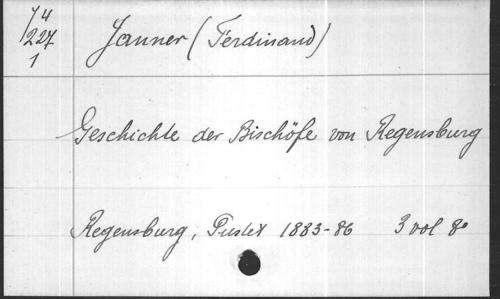 J4
227
1
Janner (Ferdinand)
Geschichte der Bischöfe von Regensburg
Regensburg, Pustet 1883-86 3 vol 8°